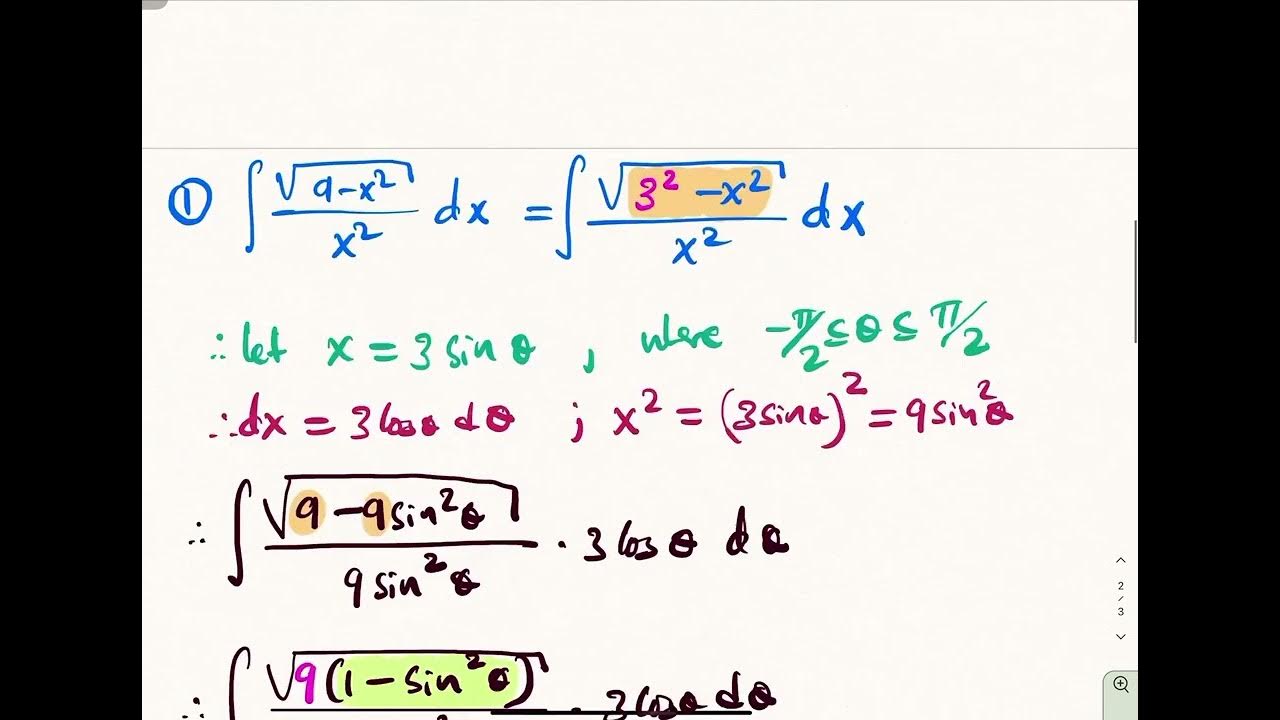 ① ∫ √(9-x²)/x² dx = ∫ √(3²-x²)/x² dx
∴ let x = 3 sin θ , where -π/2 ≤ θ ≤ π/2
∴ dx = 3 cos θ dθ ; x² = (3 sin θ)² = 9 sin² θ
∴ ∫ √(9-9 sin² θ)/(9 sin² θ) · 3 cos θ dθ
2
/
3
∴ ∫ √(9(1 - sin² θ)) · 3 cos θ dθ